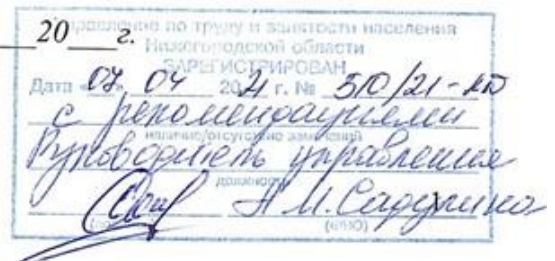 20 г.
Управление по труду и занятости населения
Нижегородской области
ЗАРЕГИСТРИРОВАН
Дата «07» 04 2021 г. № 510/21-КД
с рекомендациями
наличие/отсутствие замечаний
Руководитель управления
должность
А.М. Садулина
(ФИО)